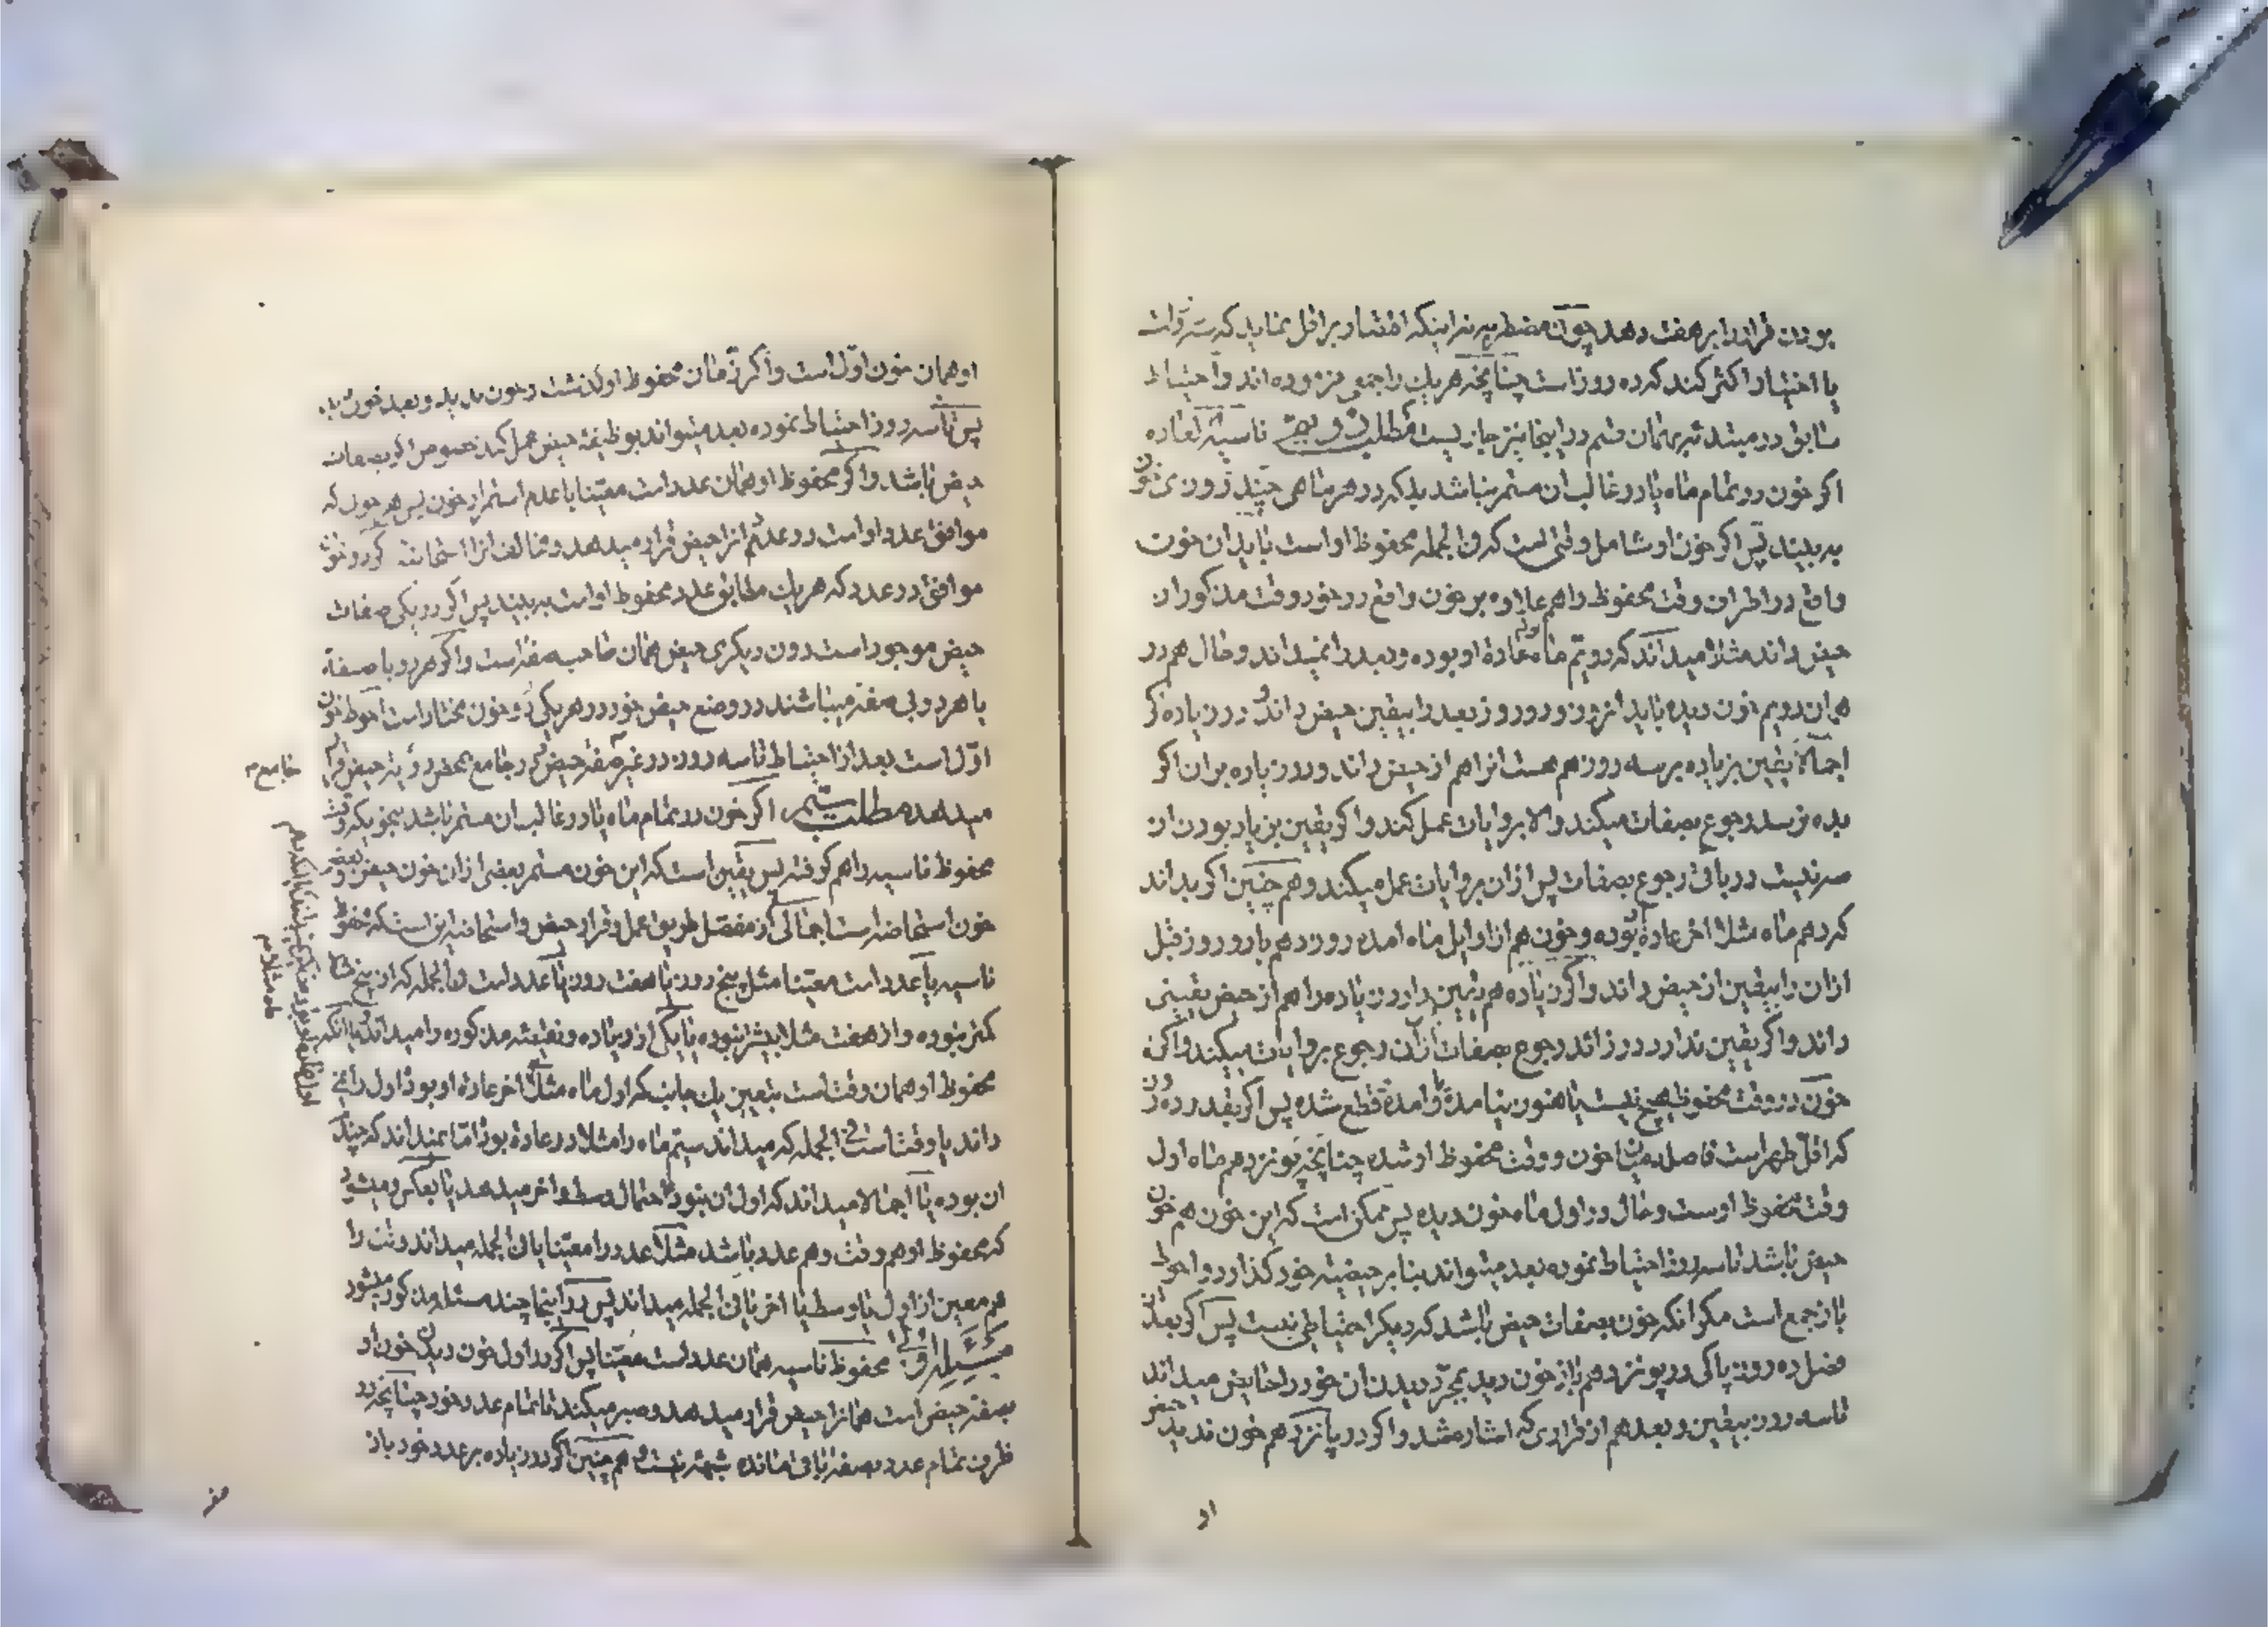 بودن قرار را بر هفت دهد چون مضطربه نه اینکه اختیار بر اقل نماید که سه است
یا اختیار اکثر کند که ده روز است چنانچه هر یک را جمعی فرموده‌اند و احتیاط
سابق در مبتدئه بهمان قسم در اینجا نیز جاریست مطلب ناسیة العاده
اگر خون در تمام ماه یا در غالب آن مستمر نباشد بلکه در هر ماهی چند روزی خون
به بیند پس اگر خون او شامل وقتی است که فی الجمله محفوظ او است باید آن خون
واقع در اطراف وقت محفوظ را هم علاوه بر خون واقع در خود وقت مذکور از
حیض داند مثلا میداند که دویم ماه عادة او بوده و بعد را نمیداند و حال هم در
همان دویم خون دیده باید از و دو روز بعد را بیقین حیض داند در زیاده اگر
اجمالا یقین بزیاده بر سه روز هم هست انرا هم از حیض داند و در زیاده بران اگر
بده نرسد رجوع بصفات میکند والا بروایات عمل کند و اگر یقین بزیاد بودن از
سه نیست در باقی رجوع بصفات پس ازان بروایات عمل میکند و هم چنین اگر بداند
که دهم ماه مثلا اخر عادة بوده و خون هم از اوایل ماه امده روز دهم با دو روز قبل
ازان را بیقین از حیض داند و اگر زیاده هم یقین دارد زیاده را هم از حیض یقینی
داند و اگر یقین ندارد در زائد رجوع بصفات ازان رجوع بروایات میکند و اگر
خون در وقت محفوظ هیچ نیست یا هنوز نیامدة و امدة قطع شده پس اگر بقدر ده روز
که اقل طهر است فاصله میان خون و وقت محفوظ او شده چنانچه پونزدهم ماه اول
وقت محفوظ اوست و حال در اول ماه خون دیده پس ممکن است که این خون هم خون
حیض باشد تا سه روز احتیاط نموده بعد میتواند بنا بر حیضیة خود گذارد و احوط
باز جمع است مگر انکه خون بصفات حیض باشد که دیگر احتیاطی نیست پس اگر بعد از
فصل ده روز پاکی در پونزدهم باز خون دید بمجرد دیدن ان خود را حایض میداند
تا سه روز بیقین و بعد هم از قراری که اشاره شد و اگر در پانزدهم خون ندید حیض
او
او همان خون اول است و اگر زمان محفوظ او گذشت و خون ندید و بعد خون دید
پس تا سه روز احتیاط نموده بعد میتواند بوظیفه حیض عمل کند خصوص اگر بصفات
حیض باشد و اگر محفوظ او همان عدد است معینا با عدم استمرار خون پس هر خون که
موافق عدد او است در عدد انرا حیض قرار میدهد و مخالف انرا استحاضه اگر دو خون
موافق در عدد که هر یک مطابق عدد محفوظ او است به بیند پس اگر در یکی صفات
حیض موجود است دون دیگری حیض همان صاحب صفة است و اگر هر دو با صفة
یا هر دو بی صفة میباشند در وضع حیض خود در هر یکی دو خون مختار است احوط خون
اول است بعد از احتیاط تا سه روز در غیر صفة حیض در جامع بمحض رؤیة حیض قرار
میدهد مطلب اگر خون در تمام ماه یا در غالب ان مستمر باشد بنحویکه وقت
محفوظ ناسیه را هم گرفته پس یقین است که این خون مستمر بعضی ازان خون حیض و بعضی
خون استحاضه است اجمالی از مفصل طریق عمل و قرار حیض و استحاضه این است که محفوظ
ناسیه یا عدد است معینا مثل پنج روز یا هفت روز یا عدد است فی الجمله که از پنج مثلا
کمتر نبوده و از هفت مثلا بیشتر نبوده یا یکی از زیاده و نقیصه مذکوره را میداند یا انکه
محفوظ او همان وقت است بتعیین یک جانب که اول ماه مثلا اخر عادة او بود اول را نمی
داند یا وقت است فی الجمله که میداند سیّم ماه را مثلا در عادة بود اما نمیداند که چند
ان بوده یا اجمالا میداند که اول ان نبود احتمال وسط و اخر میدهد یا بعکس و میشود
که محفوظ او هم وقت و هم عدد باشد مثلا عدد را معینا یا فی الجمله میداند وقت را
هم معین از اول یا وسط یا اخر یا فی الجمله میداند پس در اینجا چند مسئله مذکور میشود
مسئلة اولی محفوظ ناسیه همان عدد است معینا پس اگر در اول خون دیدن خون او
بصفة حیض است همانرا حیض قرار میدهد و صبر میکند تا تمام عدد خود چنانچه در
ظرف تمام عدد بصفة باقی مانده شبهة نیست و هم چنین اگر در زیاده بر عدد خود باز
جامع